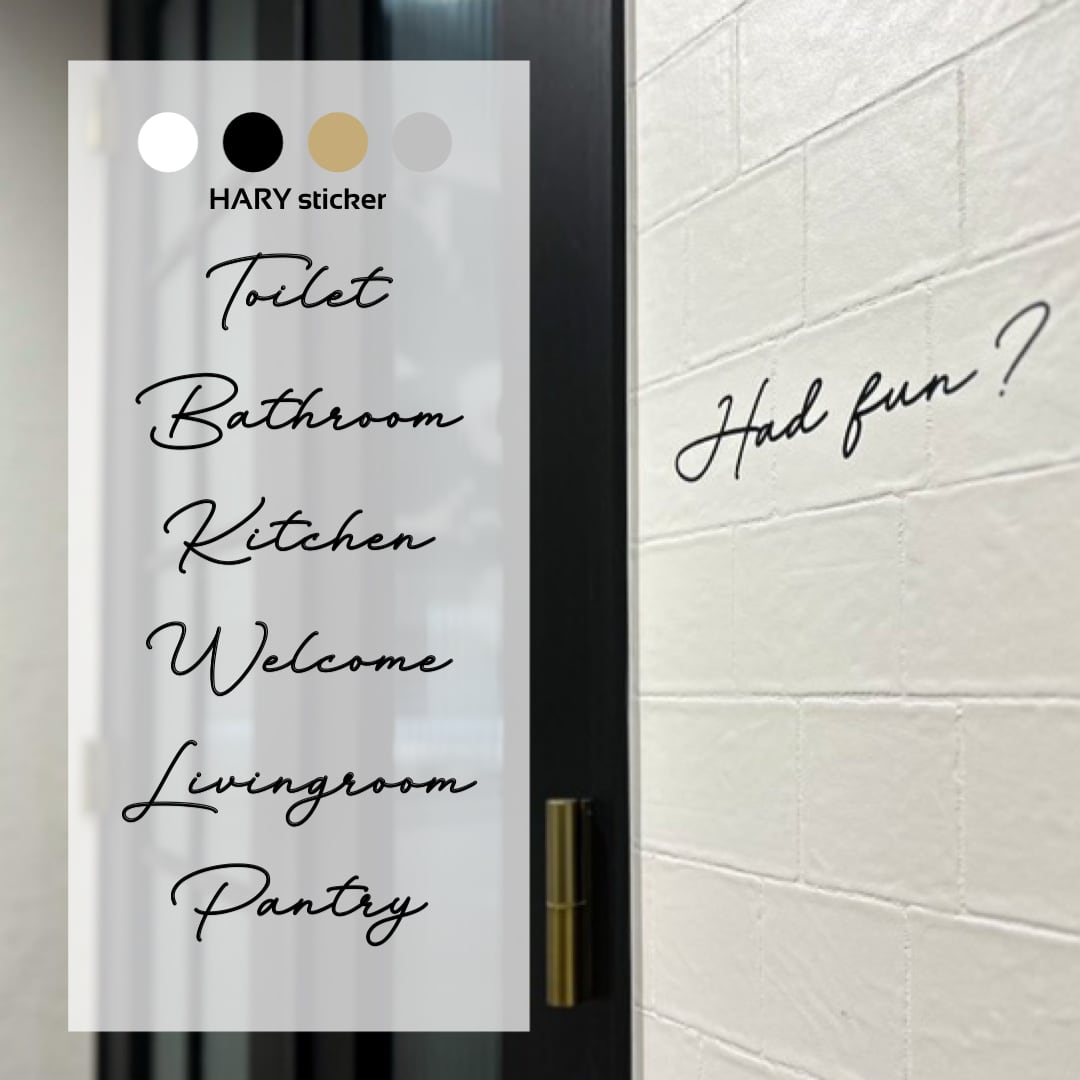 HARY sticker
Toilet
Bathroom
Kitchen
Welcome
Livingroom
Pantry
Had fun ?